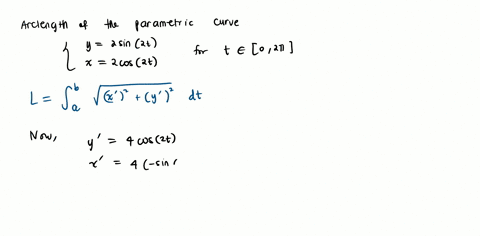 Arclength of the parametric curve
{ y = 2 sin (2t)
x = 2 cos (2t) for t ∈ [0, 2π]
L = ∫_a^b √((x')² + (y')²) dt
Now, y' = 4 cos(2t)
x' = 4 (-sin (